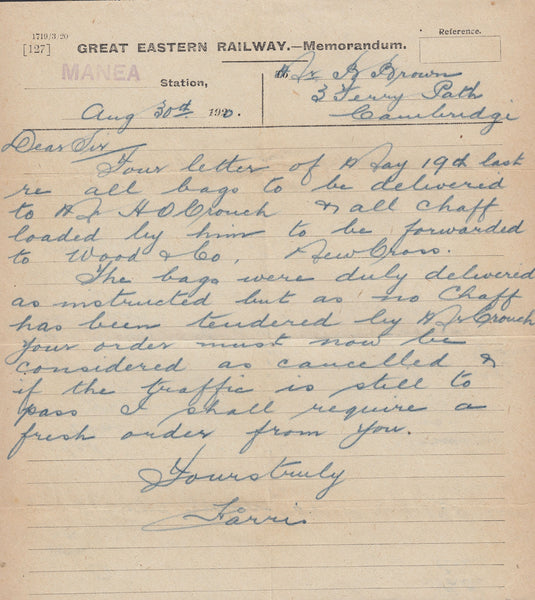 1719/3/20
[127] GREAT EASTERN RAILWAY.—Memorandum. Reference.
MANEA Station, To Mr B Brown
3 Ferry Path
Aug 30th 1920. Cambridge
Dear Sir
Your letter of May 19th last
re all bags to be delivered
to Mr H O Crouch & all chaff
loaded by him to be forwarded
to Wood & Co, New Cross.
The bags were duly delivered
as instructed but as no Chaff
has been tendered by Mr Crouch
your order must now be
considered as cancelled &
if the traffic is still to
pass I shall require a
fresh order from you.
Yours truly